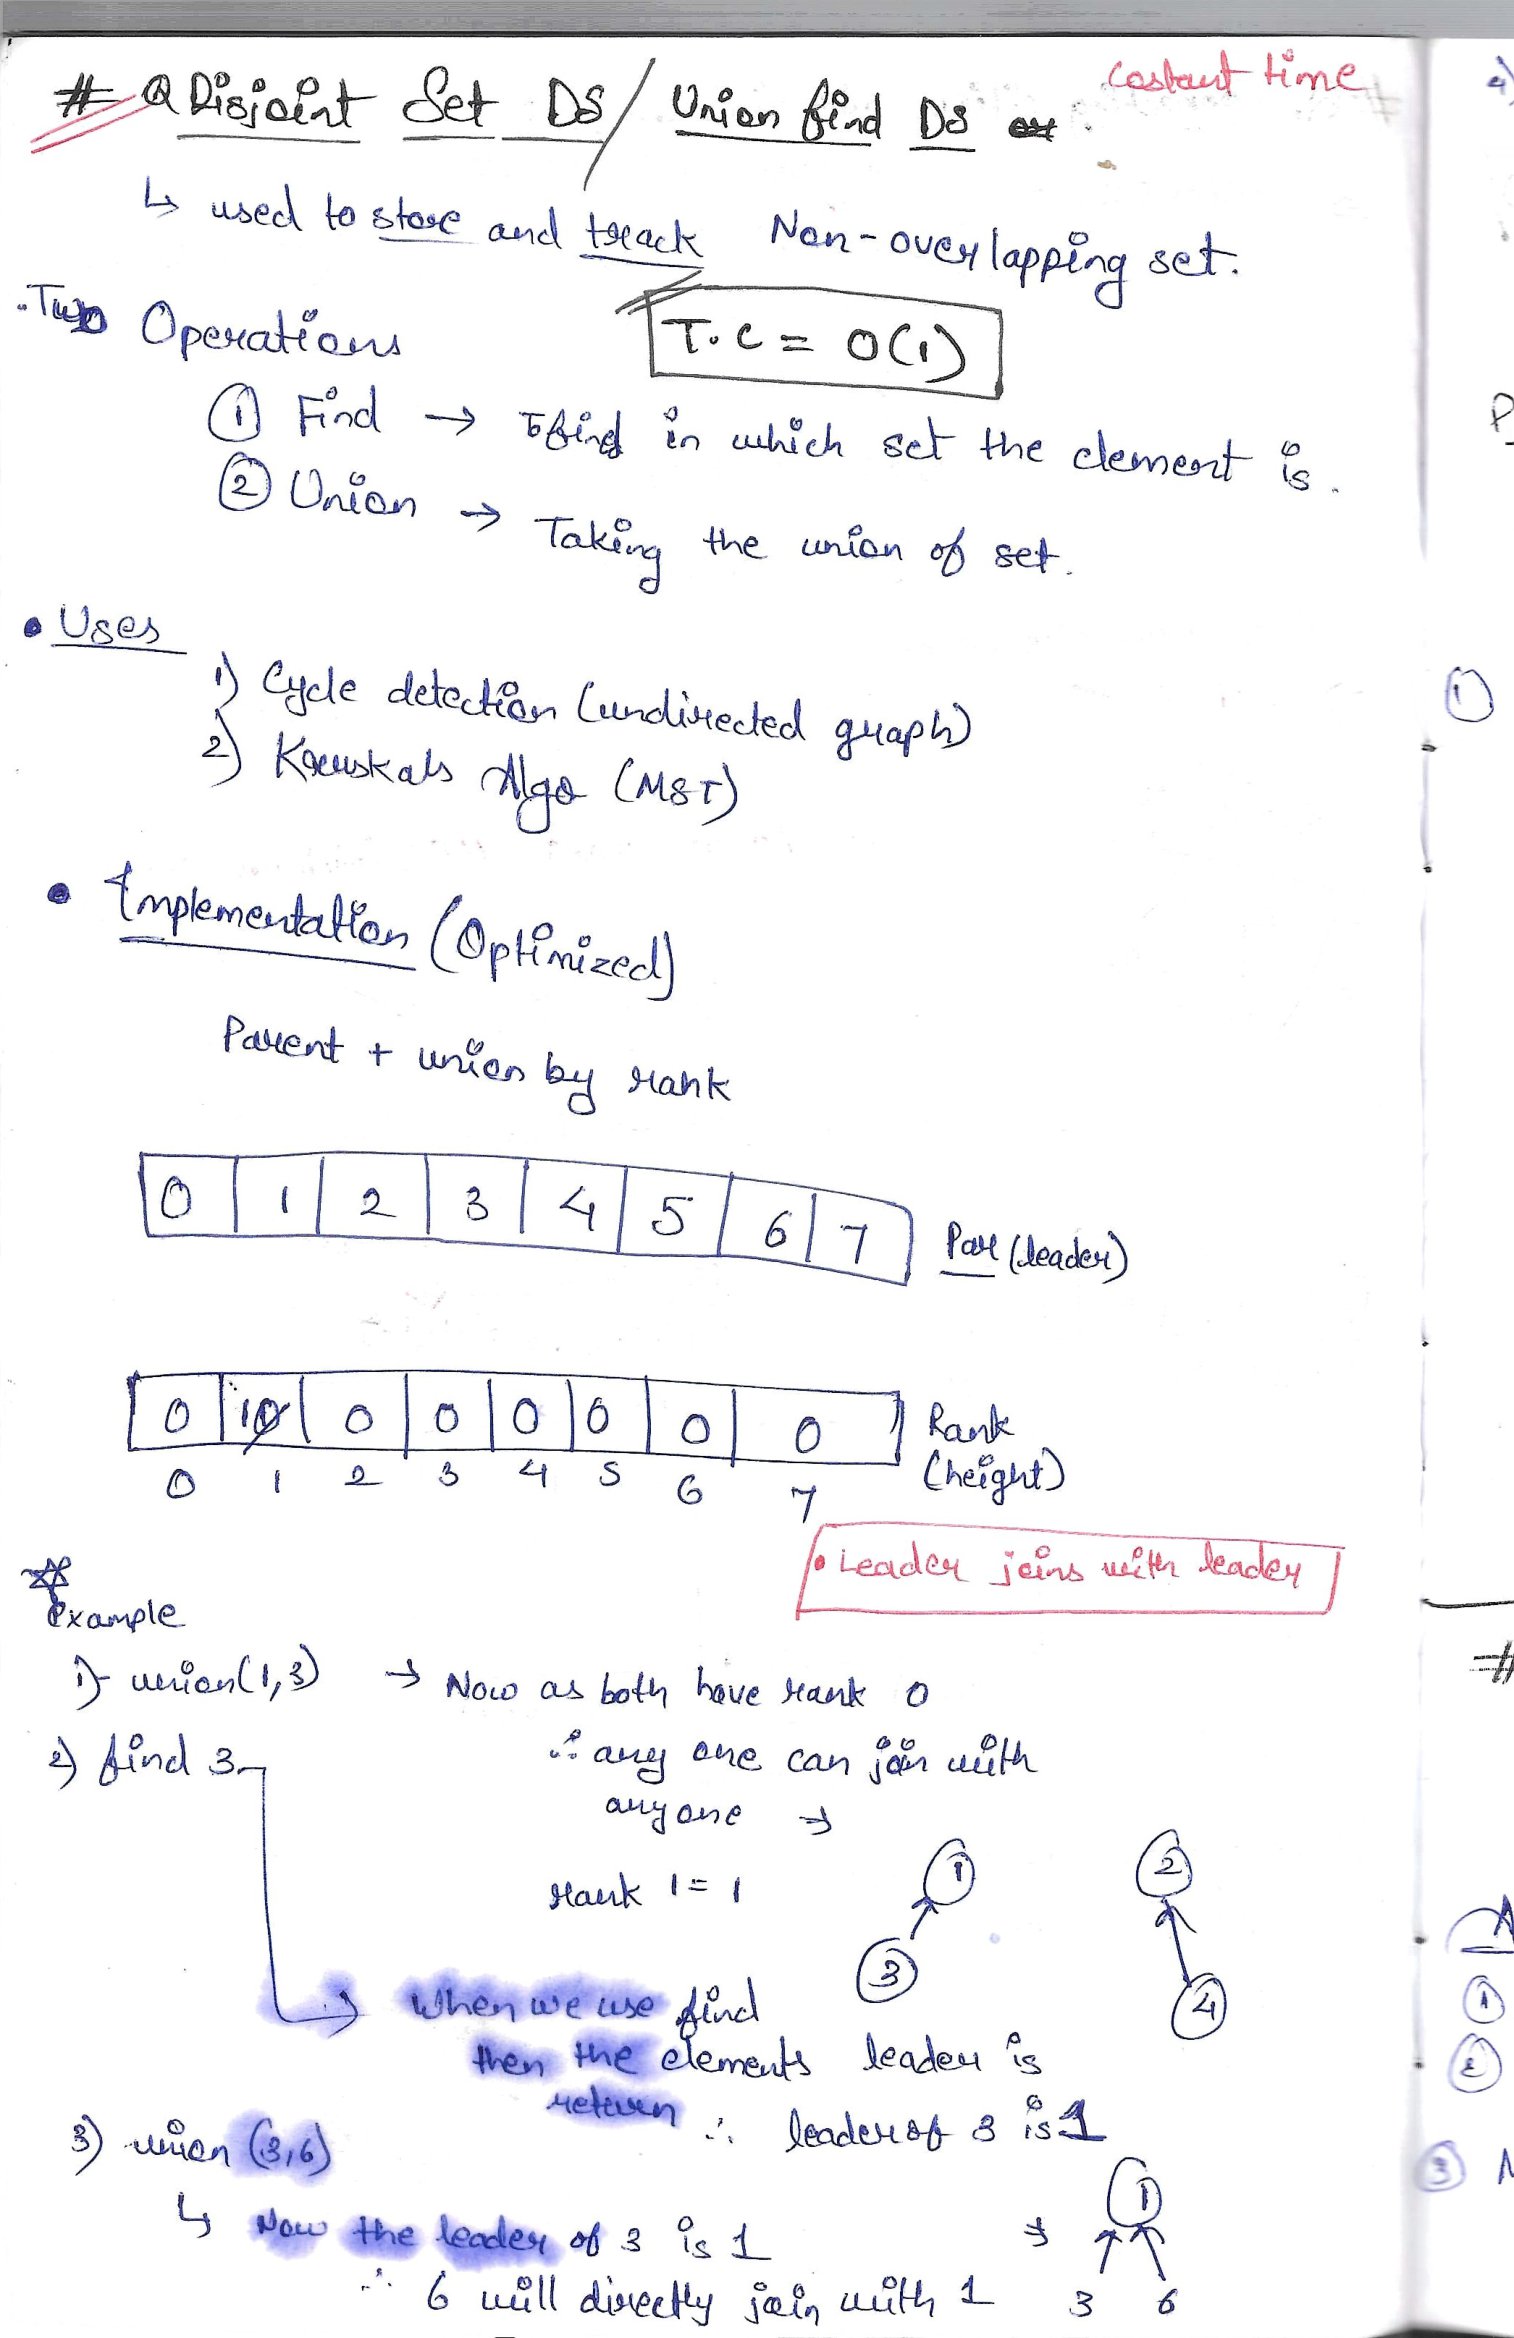 Costant time
# Q Disjoint Set DS / Union find DS
↳ used to store and track Non-overlapping set.
Two Operations
T.C = O(1)
① Find → To find in which set the element is.
② Union → Taking the union of set.
• Uses
1) Cycle detection (undirected graph)
2) Kruskals Algo (MST)
• Implementation (Optimized)
Parent + union by rank
0 1 2 3 4 5 6 7 Par (leader)
0 10 0 0 0 0 0 0 Rank
0 1 2 3 4 5 6 7 (height)
• Leader joins with leader
Example
1) union(1,3) → Now as both have rank 0
2) find 3 ∴ any one can join with
anyone →
rank 1 = 1
1 2
3 4
When we use find
then the elements leader is
return ∴ leader of 3 is 1
3) union (3,6)
↳ Now the leader of 3 is 1 → 1
∴ 6 will directly join with 1 3 6
4)
P
①
#
A
①
②
③ N